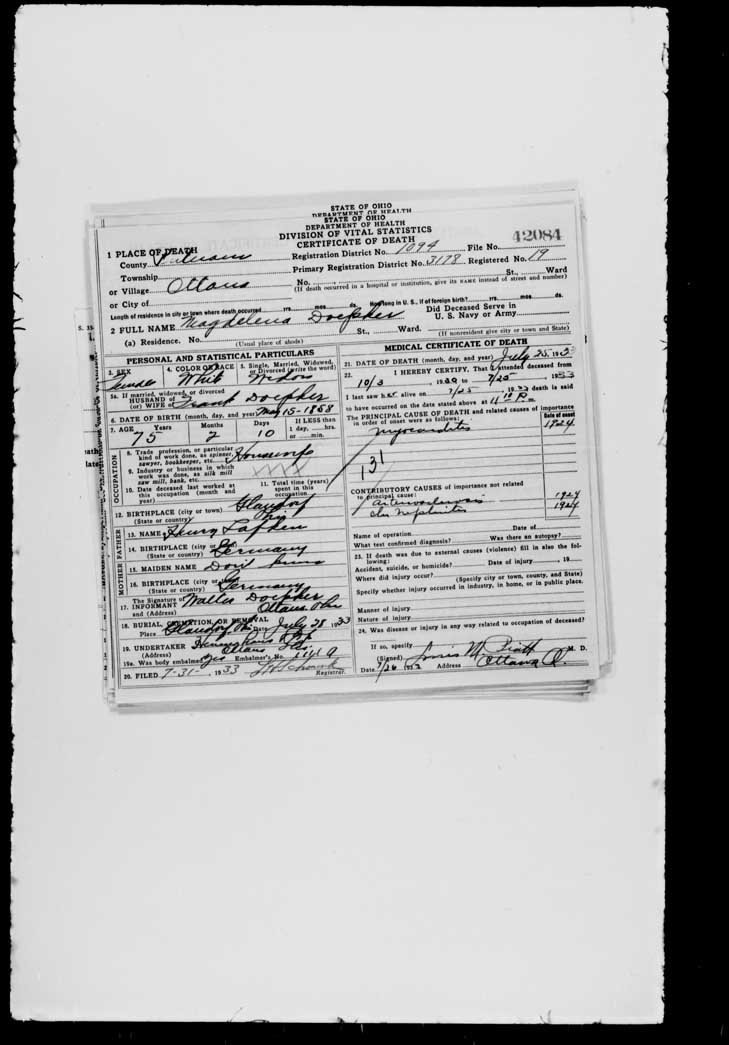 STATE OF OHIO
DEPARTMENT OF HEALTH
STATE OF OHIO
DEPARTMENT OF HEALTH
DIVISION OF VITAL STATISTICS
CERTIFICATE OF DEATH
42084
1 PLACE OF DEATH
County Putnam Registration District No. 1094 File No.
Township Primary Registration District No. 3178 Registered No. 19
or Village Ottawa No. St., Ward
(If death occurred in a hospital or institution, give its NAME instead of street and number)
or City of
Length of residence in city or town where death occurred yrs. mos. ds. How long in U. S., if of foreign birth? yrs. mos. ds.
2 FULL NAME Magdelena Doepker Did Deceased Serve in U. S. Navy or Army
(a) Residence. No. St., Ward.
(Usual place of abode) (If nonresident give city or town and State)
PERSONAL AND STATISTICAL PARTICULARS
3. SEX Female 4. COLOR OR RACE White 5. Single, Married, Widowed, or Divorced (write the word) Widow
5a. If married, widowed, or divorced
HUSBAND of
(or) WIFE of Frank Doepker
6. DATE OF BIRTH (month, day, and year) May 15-1858
7. AGE Years Months Days If LESS than 1 day, hrs. or min.
75 2 10
OCCUPATION
8. Trade, profession, or particular kind of work done, as spinner, sawyer, bookkeeper, etc. Housewife
9. Industry or business in which work was done, as silk mill saw mill, bank, etc.
10. Date deceased last worked at this occupation (month and year)
11. Total time (years) spent in this occupation
12. BIRTHPLACE (city or town) Glandorf
(State or country) Ohio
FATHER
13. NAME Henry
14. BIRTHPLACE (city or town)
(State or country) Germany
MOTHER
15. MAIDEN NAME
16. BIRTHPLACE (city or town)
(State or country) Germany
17. The Signature of INFORMANT Walter Doepker
and (Address) Ottawa Ohio
18. BURIAL, CREMATION, OR REMOVAL
Place Glandorf Date July 28 1933
19. UNDERTAKER
(Address) Ottawa
19a. Was body embalmed yes Embalmer's No.
20. FILED 7-31-, 1933 Registrar.
MEDICAL CERTIFICATE OF DEATH
21. DATE OF DEATH (month, day, and year) July 25, 1933
22. I HEREBY CERTIFY, That I attended deceased from
10/3, to 7/25 1933
I last saw her alive on 7/25, 1933 death is said
to have occurred on the date stated above at 11 10 P. m.
The PRINCIPAL CAUSE OF DEATH and related causes of importance
in order of onset were as follows: Date of onset
Myocarditis 1924
131
CONTRIBUTORY CAUSES of importance not related
to principal cause:
Arteriosclerosis 1924
Chr Nephritis 1924
Name of operation Date of
What test confirmed diagnosis? Was there an autopsy?
23. If death was due to external causes (violence) fill in also the following:
Accident, suicide, or homicide? Date of injury , 19
Where did injury occur?
(Specify city or town, county, and State)
Specify whether injury occurred in industry, in home, or in public place.
Manner of injury
Nature of injury
24. Was disease or injury in any way related to occupation of deceased?
If so, specify
(Signed) M. Piatt M. D.
Date 7/26 Address Ottawa O.